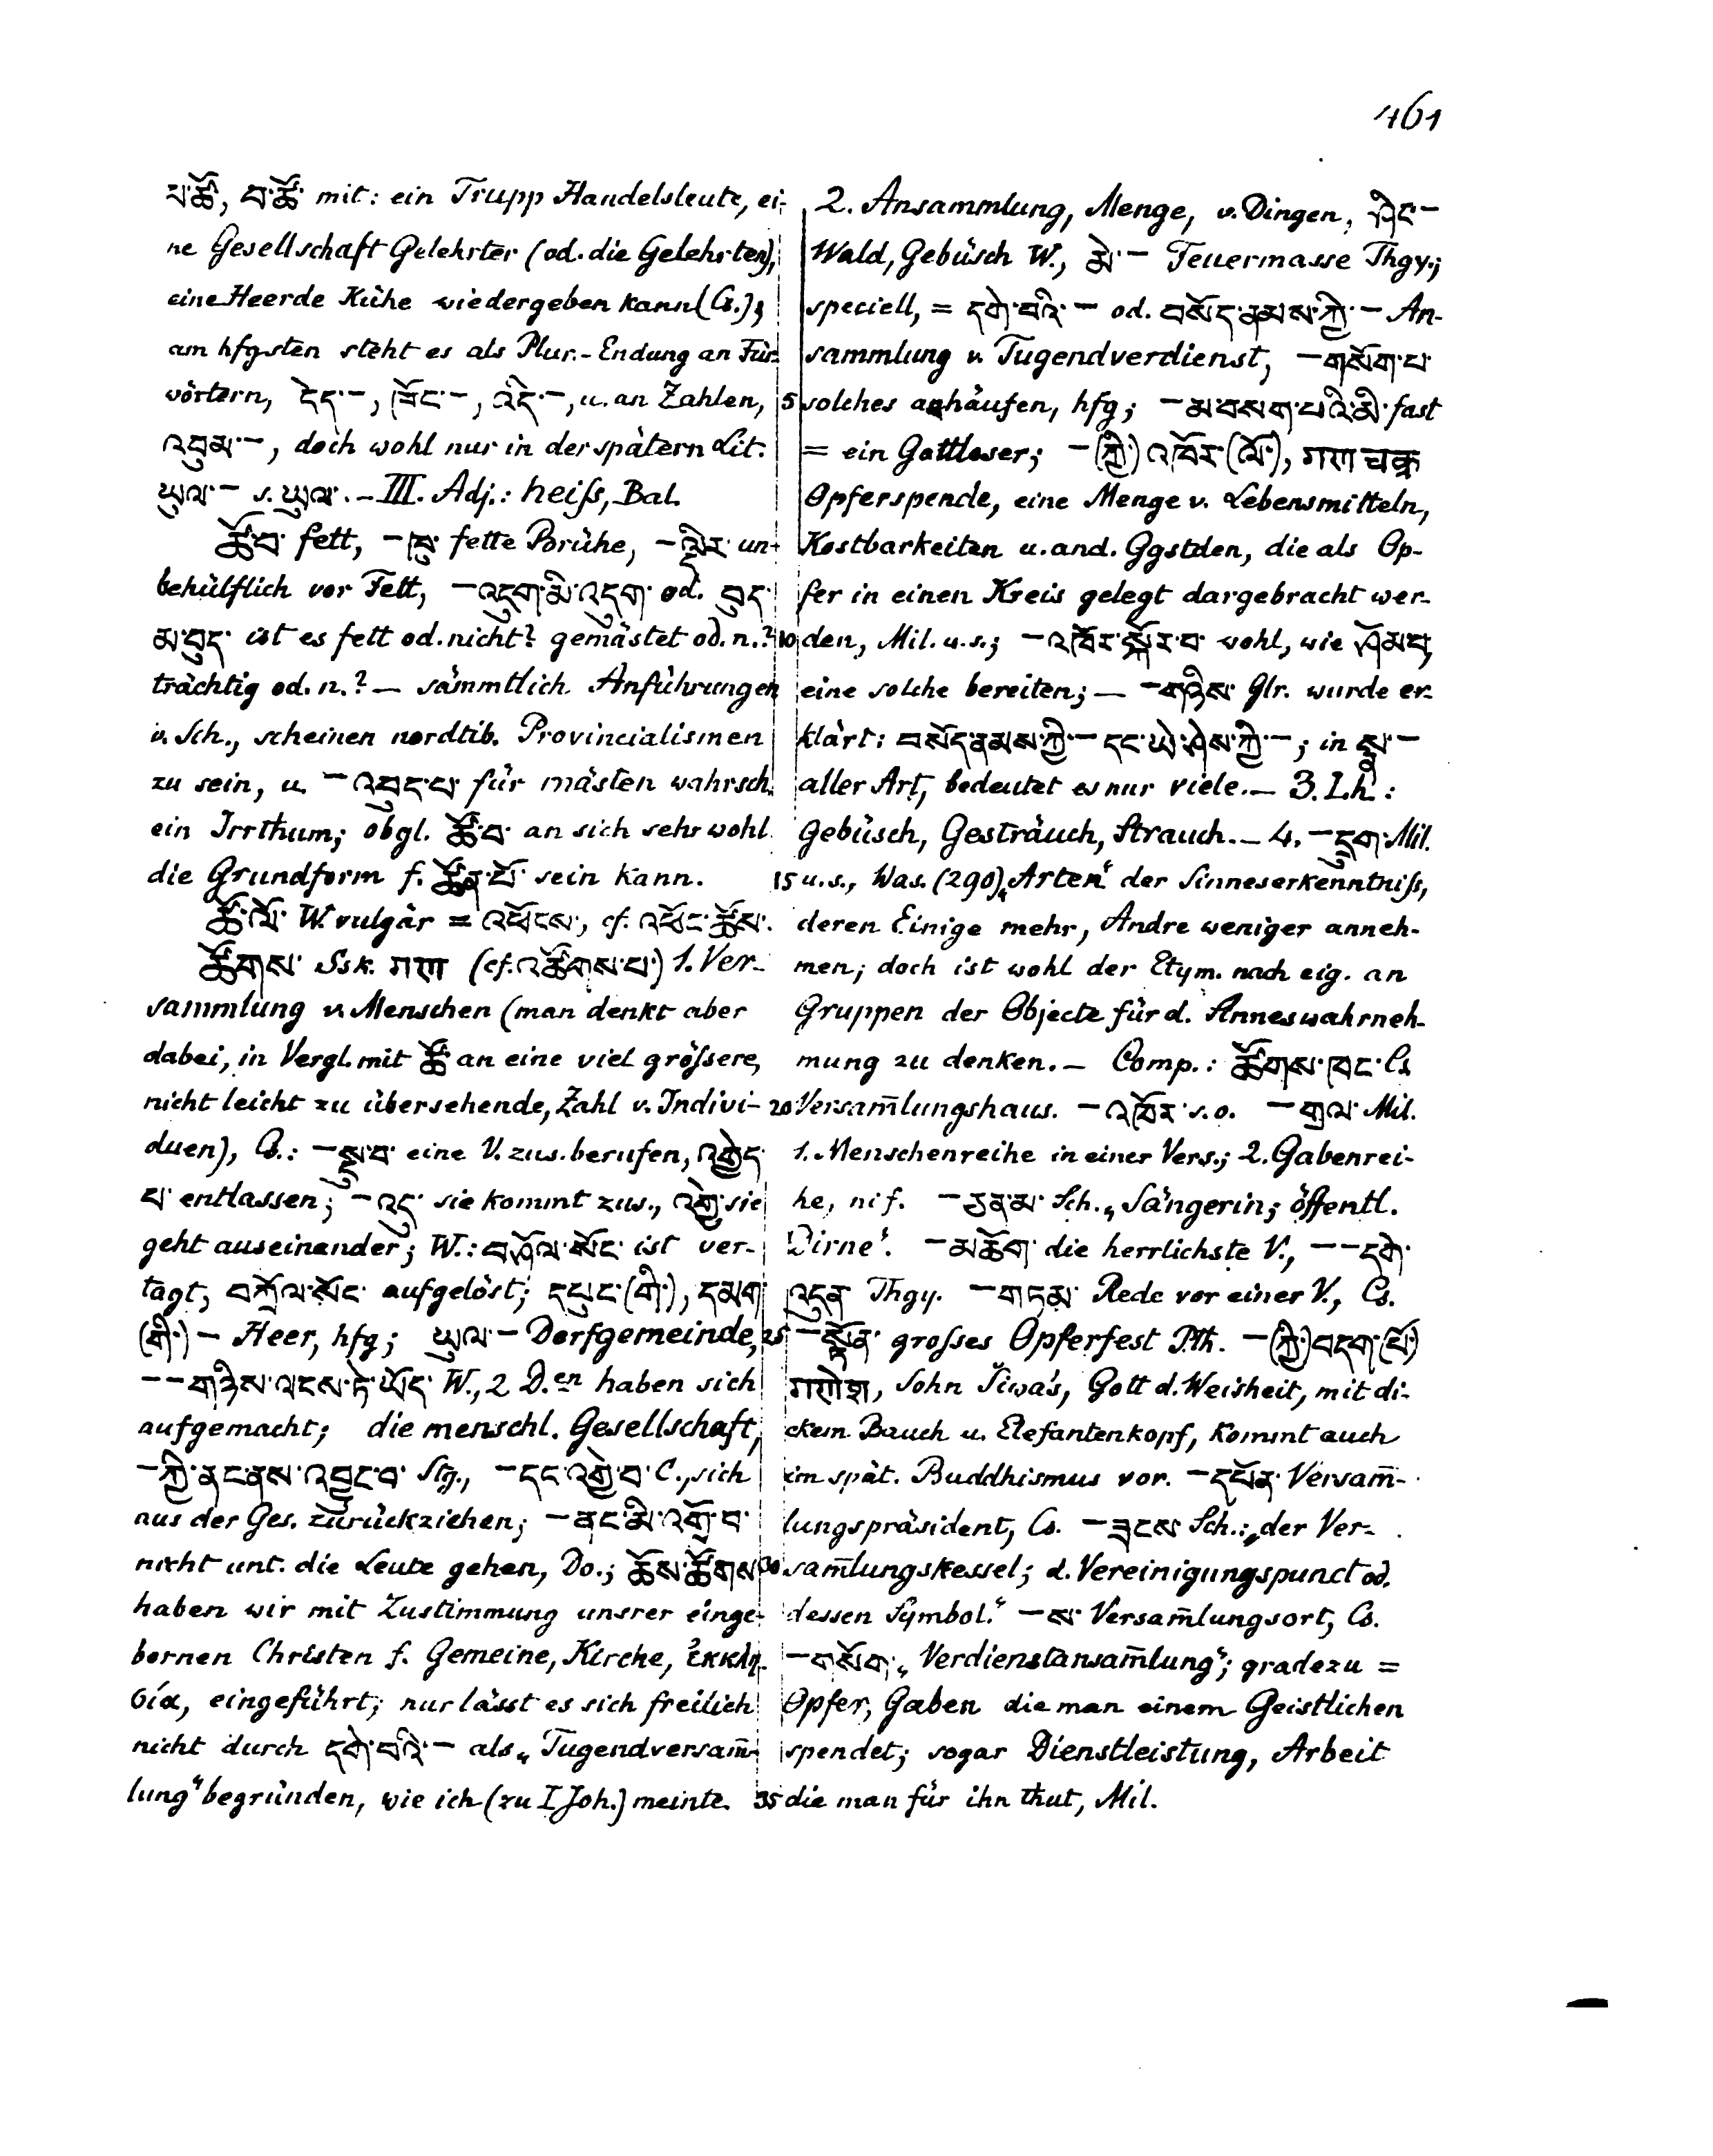 461
པ་ཚོ་, བ་ཚོ་ mit: ein Trupp Handelsleute, ei-
ne Gesellschaft Gelehrter (od. die Gelehrten),
eine Heerde Kühe wiedergeben kann (Cs.);
am hfgsten steht es als Plur.-Endung an Für-
wörtern, དེད་–, ཁོང་–, འདི་–, u. an Zahlen, 5
འབུམ་–, doch wohl nur in der spätern Lit.
ཡུལ་– s. ཡུལ་. – III. Adj.: heiſs, Bal.
ཚོ་བ་ fett, –ཁུ་ fette Brühe, –ལྡིར་ un-
behülflich vor Fett, –འདུག་མི་འདུག་ od. བུད་
མ་བུད་ ist es fett od. nicht? gemästet od. n.? 10
trächtig od. n.? – sämmtlich Anführungen
v. Sch., scheinen nordtib. Provincialismen
zu sein, u. –འབུད་པ་ für mästen wahrsch.
ein Irrthum; obgl. ཚོ་བ་ an sich sehr wohl
die Grundform f. ཚོན་པོ་ sein kann. 15
ཚོ་ལོ་ W. vulgär = འཕོངས་, cf. འཕོང་ཚོས་.
ཚོགས་ Ssk. गण (cf. འཚོགས་པ་) 1. Ver-
sammlung v. Menschen (man denkt aber
dabei, in Vergl. mit ཚོ་ an eine viel gröſsere,
nicht leicht zu übersehende, Zahl v. Indivi- 20
duen), Cs.: –སྡུ་བ་ eine V. zus. berufen, འགྱེད་
པ་ entlassen; –འདུ་ sie kommt zus., འགྱེ་ sie
geht auseinander; W.: བཤོལ་སོང་ ist ver-
tagt, བཀྲོལ་སོང་ aufgelöst; དཔུང་(གི་), དམག་
(གི་) – Heer, hfg; ཡུལ་– Dorfgemeinde, 25
––གཉིས་ལངས་ཏེ་ཡོད་ W., 2 D.en haben sich
aufgemacht; die menschl. Gesellschaft,
–ཀྱི་ནང་ནས་འབྱུང་བ་ Stg., –དང་འགྱེ་བ་ C., sich
aus der Ges. zurückziehen; –ནང་མི་འགྲོ་བ་
nicht unt. die Leute gehen, Do.; ཆོས་ཚོགས་ 30
haben wir mit Zustimmung unsrer einge-
bornen Christen f. Gemeine, Kirche, ἐκκλη-
σία, eingeführt; nur lässt es sich freilich
nicht durch དགེ་བའི་– als „Tugendversam̄-
lung“ begründen, wie ich (zu I Joh.) meinte. 35
2. Ansammlung, Menge, v. Dingen, ཤིང་–
Wald, Gebüsch W., མེ་– Feuermasse Thgy.;
speciell, = དགེ་བའི་– od. བསོད་ནམས་ཀྱི་– An-
sammlung v. Tugendverdienst, –གསོག་པ་
solches anhäufen, hfg; –མ་བསག་པའི་མི་ fast
= ein Gottloser; –(ཀྱི་) འཁོར་(ལོ་), गणचक्र
Opferspende, eine Menge v. Lebensmitteln,
Kostbarkeiten u. and. Ggstden, die als Op-
fer in einen Kreis gelegt dargebracht wer-
den, Mil. u. s.; –འཁོར་སྐོར་བ་ wohl, wie ཤོམ་པ་,
eine solche bereiten; – –གཉིས་ Glr. wurde er-
klärt: བསོད་ནམས་ཀྱི་–དང་ཡེ་ཤེས་ཀྱི་–; in སྣ་–
aller Art, bedeutet es nur viele. – 3. Lh.:
Gebüsch, Gesträuch, Strauch. – 4. –དྲུག་ Mil.
u. s., Was. (290) „Arten“ der Sinneserkenntniſs,
deren Einige mehr, Andre weniger anneh-
men; doch ist wohl der Etym. nach eig. an
Gruppen der Objecte für d. Sinneswahrneh-
mung zu denken. – Comp.: ཚོགས་ཁང་ Cs.
Versam̄lungshaus. –འཁོར་ s. o. –གྲལ་ Mil.
1. Menschenreihe in einer Vers.; 2. Gabenrei-
he, ni f. –ཅན་མ་ Sch. „Sängerin; öffentl.
Dirne“. –མཆོག་ die herrlichste V., ––དགེ་
འདུན་ Thgy. –གཏམ་ Rede vor einer V., Cs.
–སྟོན་ groſses Opferfest Pth. –(ཀྱི་)བདག་(པོ་)
गणेश, Sohn Šiwa's, Gott d. Weisheit, mit di-
ckem Bauch u. Elefantenkopf, kommt auch
im spät. Buddhismus vor. –དཔོན་ Versam̄-
lungspräsident, Cs. –ཟངས་ Sch.: „der Ver-
sam̄lungskessel; d. Vereinigungspunct od.
dessen Symbol.“ –ས་ Versam̄lungsort, Cs.
–གསོག་ „Verdienstansam̄lung“; gradezu =
Opfer, Gaben die man einem Geistlichen
spendet; sogar Dienstleistung, Arbeit
die man für ihn thut, Mil.